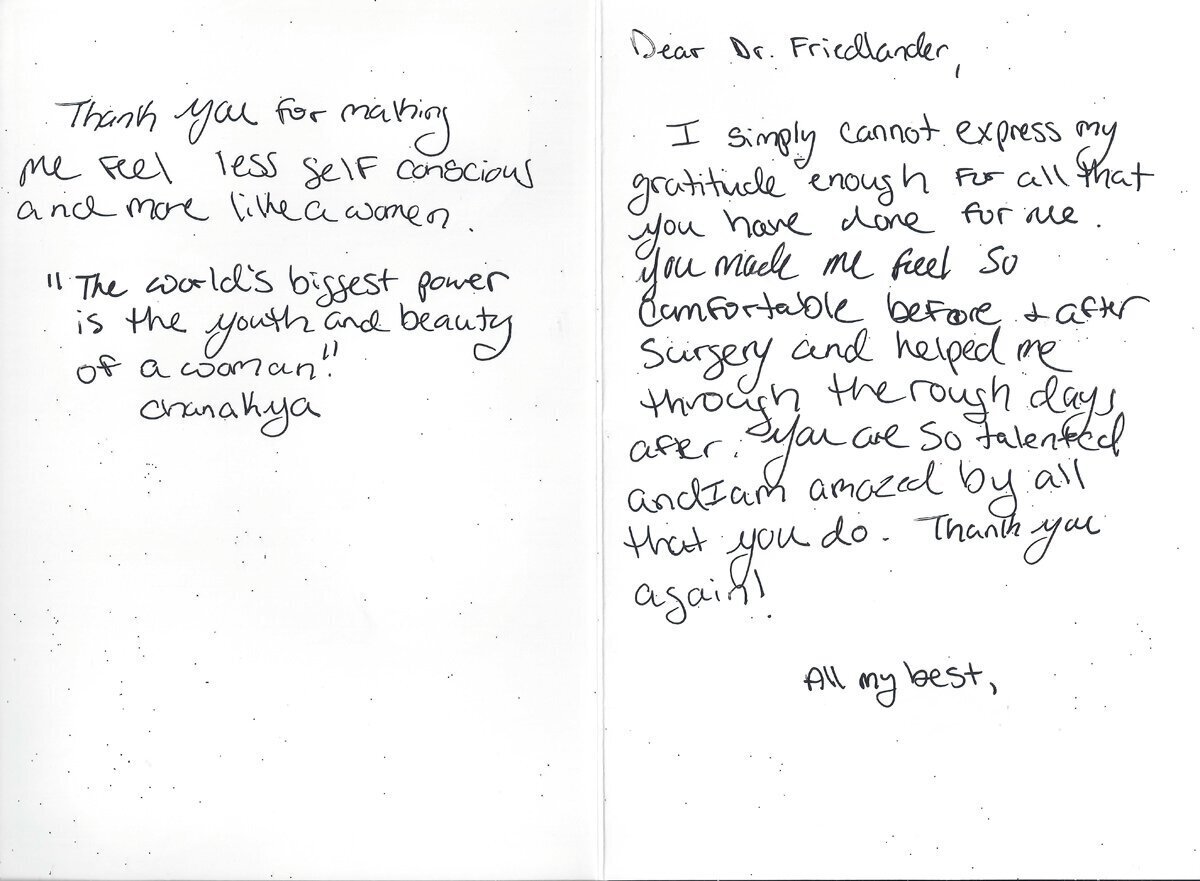 Thank you for making
me feel less self conscious
and more like a women.
"The world's biggest power
is the youth and beauty
of a woman."
Chanakya
Dear Dr. Friedlander,
I simply cannot express my
gratitude enough for all that
you have done for me.
You made me feel so
comfortable before & after
surgery and helped me
through the rough days
after. You are so talented
and I am amazed by all
that you do. Thank you
again!
All my best,